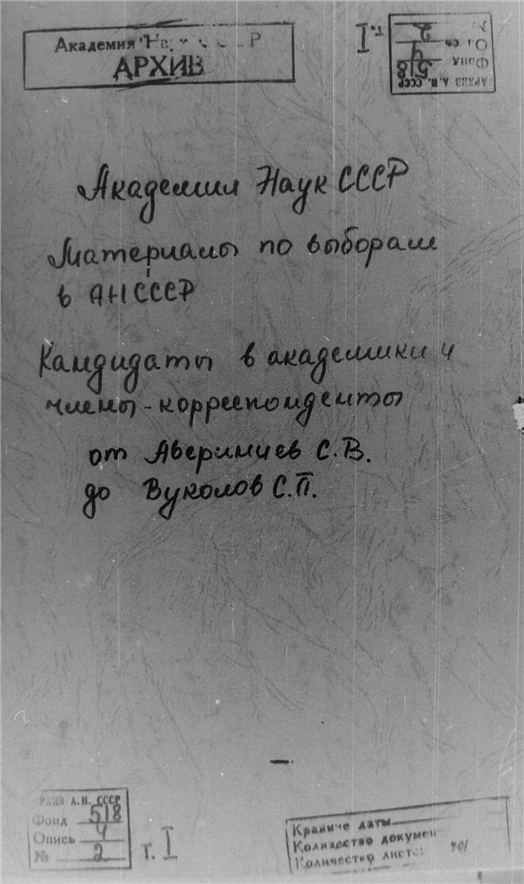 Академия Наук СССР
АРХИВ
АРХИВ А.Н. СССР
Фонд 518
Опись 4
№ 2
т. I
Академия Наук СССР
Материалы по выборам
в АН СССР
Кандидаты в академики и
члены-корреспонденты
от Аверинцев С.В.
до Вуколов С.П.
АРХИВ А.Н. СССР
Фонд 518
Опись 4
№ 2
т. I
Крайние даты
Количество докумен
Количество листо